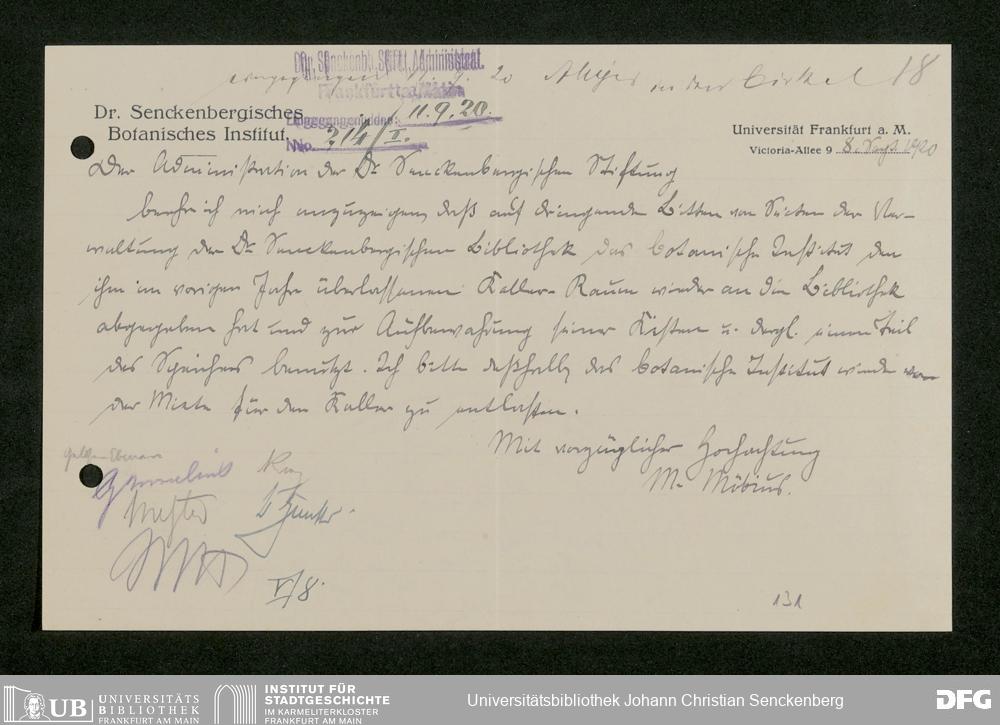 Dr. Senckenb. Stift. Administrat.
eingegangen 11.9.20
in den Cirkel 18
Frankfurt a. Main
Dr. Senckenbergisches
Botanisches Institut.
Eingegangen den: 11.9.20.
No. 214/II.
Universität Frankfurt a. M.
Victoria-Allee 9 8. Sept 1920
Der Administration der Dr. Senckenbergischen Stiftung
beehre ich mich anzuzeigen, daß auf dringende Bitten von Seiten der Ver-
waltung der Dr. Senckenbergischen Bibliothek das botanische Institut den
ihm im vorigen Jahre überlassenen Keller-Raum wieder an die Bibliothek
abgegeben hat und zur Aufbewahrung seiner Kisten u. dergl. einen Teil
des Speichers benutzt. Ich bitte deßhalb, das botanische Institut wieder von
der Miete für den Keller zu entlasten.
Mit vorzüglicher Hochachtung
M. Möbius.
V/8.
131
UB UNIVERSITÄTS
BIBLIOTHEK
FRANKFURT AM MAIN
INSTITUT FÜR
STADTGESCHICHTE
IM KARMELITERKLOSTER
FRANKFURT AM MAIN
Universitätsbibliothek Johann Christian Senckenberg
DFG